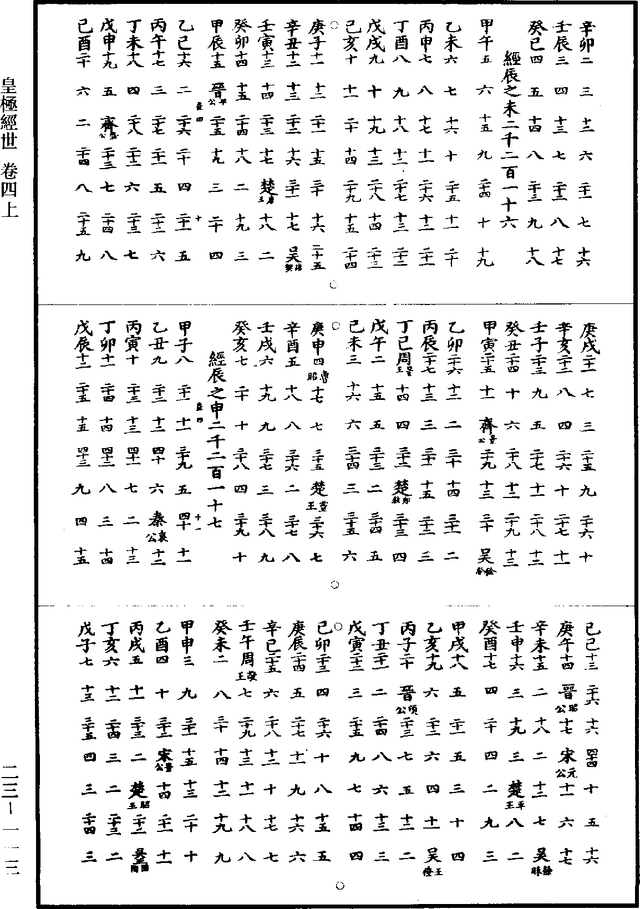 辛卯 二 三 十二 六 二十一 七 十六
壬辰 三 四 十三 七 二十二 八 十七
癸巳 四 五 十四 八 二十三 九 十八
經辰之未二千二百一十六
甲午 五 六 十五 九 二十四 十 十九
乙未 六 七 十六 十 二十五 十一 二十
丙申 七 八 十七 十一 二十六 十二 二十一
丁酉 八 九 十八 十二 二十七 十三 二十二
戊戌 九 十 十九 十三 二十八 十四 二十三
己亥 十 十一 二十 十四 二十九 十五 二十四
庚子 十一 十二 二十一 十五 三十 十六 二十五
辛丑 十二 十三 二十二 十六 三十一 十七 吳諸樊
壬寅 十三 十四 二十三 十七 楚康王 十八 二
癸卯 十四 十五 二十四 十八 二 十九 三
甲辰 十五 晉平公 二十五 十九 三 二十 四
乙巳 十六 二 二十六 二十 四 二十一 五
丙午 十七 三 二十七 二十一 五 二十二 六
丁未 十八 四 二十八 二十二 六 二十三 七
戊申 十九 五 齊莊公 二十三 七 二十四 八
己酉 二十 六 二 二十四 八 二十五 九
庚戌 二十一 七 三 二十五 九 二十六 十
辛亥 二十二 八 四 二十六 十 二十七 十一
壬子 二十三 九 五 二十七 十一 二十八 十二
癸丑 二十四 十 六 二十八 十二 二十九 十三
甲寅 二十五 十一 齊景公 二十九 十三 三十 吳餘祭
乙卯 二十六 十二 二 三十 十四 三十一 二
丙辰 二十七 十三 三 三十一 十五 三十二 三
丁巳 周景王 十四 四 三十二 楚郟敖 三十三 四
戊午 二 十五 五 三十三 二 三十四 五
己未 三 十六 六 三十四 三 三十五 六
庚申 四 魯昭 十七 七 三十五 楚靈王 三十六 七
辛酉 五 十八 八 三十六 二 三十七 八
壬戌 六 十九 九 三十七 三 三十八 九
癸亥 七 二十 十 三十八 四 三十九 十
經辰之申二千二百一十七
甲子 八 二十一 十一 三十九 五 四十 十一
乙丑 九 二十二 十二 四十 六 秦哀公 十二
丙寅 十 二十三 十三 四十一 七 二 十三
丁卯 十一 二十四 十四 四十二 八 三 十四
戊辰 十二 二十五 十五 四十三 九 四 十五
己巳 十三 二十六 十六 四十四 十 五 十六
庚午 十四 晉昭公 十七 宋元公 十一 六 十七
辛未 十五 二 十八 二 十二 七 吳餘眛
壬申 十六 三 十九 三 楚平王 八 二
癸酉 十七 四 二十 四 二 九 三
甲戌 十八 五 二十一 五 三 十 四
乙亥 十九 六 二十二 六 四 十一 吳王僚
丙子 二十 晉頃公 二十三 七 五 十二 二
丁丑 二十一 二 二十四 八 六 十三 三
戊寅 二十二 三 二十五 九 七 十四 四
己卯 二十三 四 二十六 十 八 十五 五
庚辰 二十四 五 二十七 十一 九 十六 六
辛巳 二十五 六 二十八 十二 十 十七 七
壬午 周敬王 七 二十九 十三 十一 十八 八
癸未 二 八 三十 十四 十二 十九 九
甲申 三 九 三十一 十五 十三 二十 十
乙酉 四 十 三十二 宋景公 十四 二十一 十一
丙戌 五 十一 三十三 二 楚昭王 二十二
丁亥 六 十二 三十四 三 二 二十三 二
戊子 七 十三 三十五 四 三 二十四 三
皇極經世 卷四上
二三-一一三